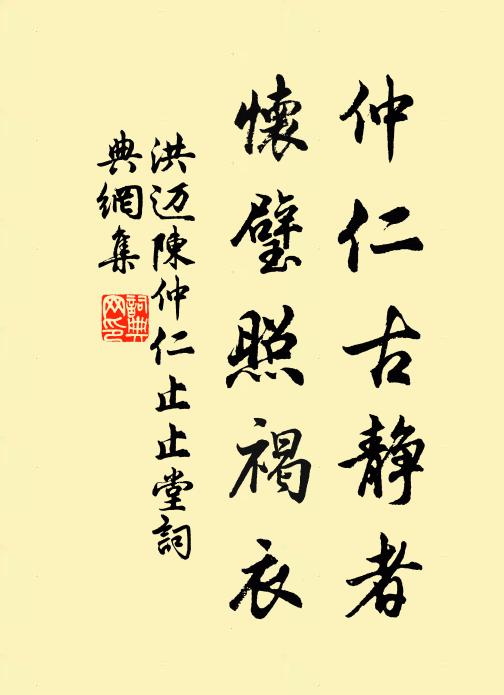 仲仁古静者
懷璧照褐衣
洪迈陳仲仁止止堂詞
典網集
詞典
网印